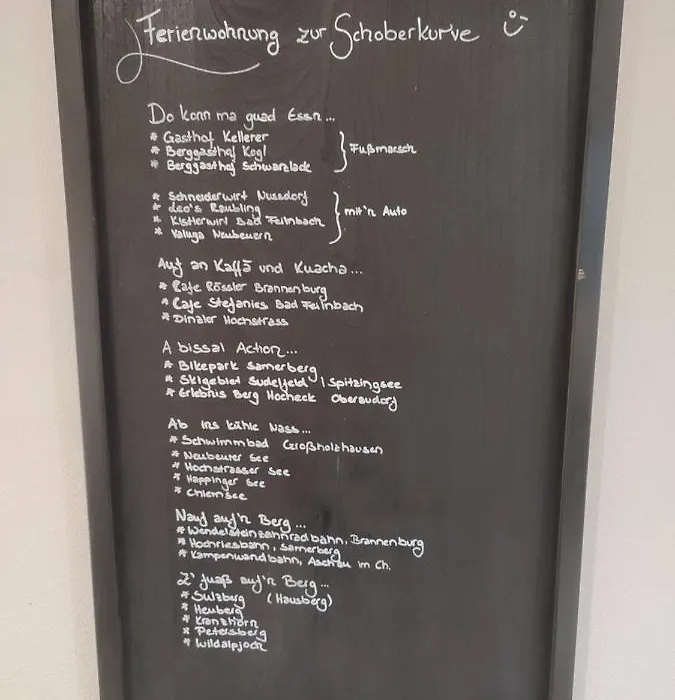 Ferienwohnung zur Schoberkurve
Do konn ma guad Essn...
* Gasthof Kellerer
* Berggasthof Kogl
* Berggasthof Schwarzlack
Fußmarsch
* Schneiderwirt Nussdorf
* Leo's Raubling
* Kistlerwirt Bad Feilnbach
* Valuga Neubeuern
mit'n Auto
Auf an Kaffä und Kuacha...
* Cafe Rössler Brannenburg
* Cafe Stefanies Bad Feilnbach
* Dinzler Hochstrass
A bissal Action...
* Bikepark Samerberg
* Skigebiet Sudelfeld | Spitzingsee
* Erlebnis Berg Hocheck Oberaudorf
Ab ins kühle Nass...
* Schwimmbad Großholzhausen
* Neubeurer See
* Hochstrasser See
* Happinger See
* Chiemsee
Nauf auf'n Berg...
* Wendelsteinzahnradbahn, Brannenburg
* Hochriesbahn, Samerberg
* Kampenwandbahn, Aschau im Ch.
Z' fuaß auf'n Berg...
* Sulzberg (Hausberg)
* Heuberg
* Kranzhorn
* Petersberg
* Wildalpjoch